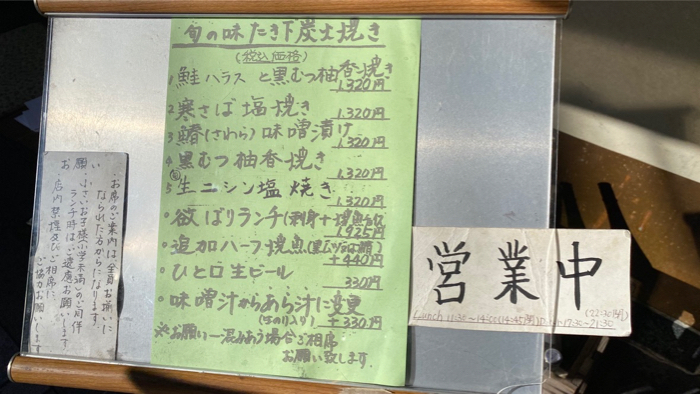 旬の味たき下炭火焼き
(税込価格)
1 鮭ハラスと黒むつ柚香焼き
1,320円
2 寒さば塩焼き
1,320円
3 鰆(さわら)味噌漬け
1,320円
4 黒むつ柚香焼き
1,320円
5 生ニシン塩焼き
1,320円
・欲ばりランチ(刺身+焼魚
1,925円
・追加ハーフ焼魚
+440円
・ひと口生ビール
330円
・味噌汁からあら汁に変更
+330円
※お願い一混みあう場合ご相席
お願い致します。
お席のご案内は全員お揃いに
なられた方からになります。
小さいお子様(小学未満)のご同伴
ランチ時はご遠慮お願いします
店内禁煙及びご相席に
ご協力お願いします
営業中
Lunch 11:30~14:00(14:45閉)
17:30~21:30
(22:30閉)